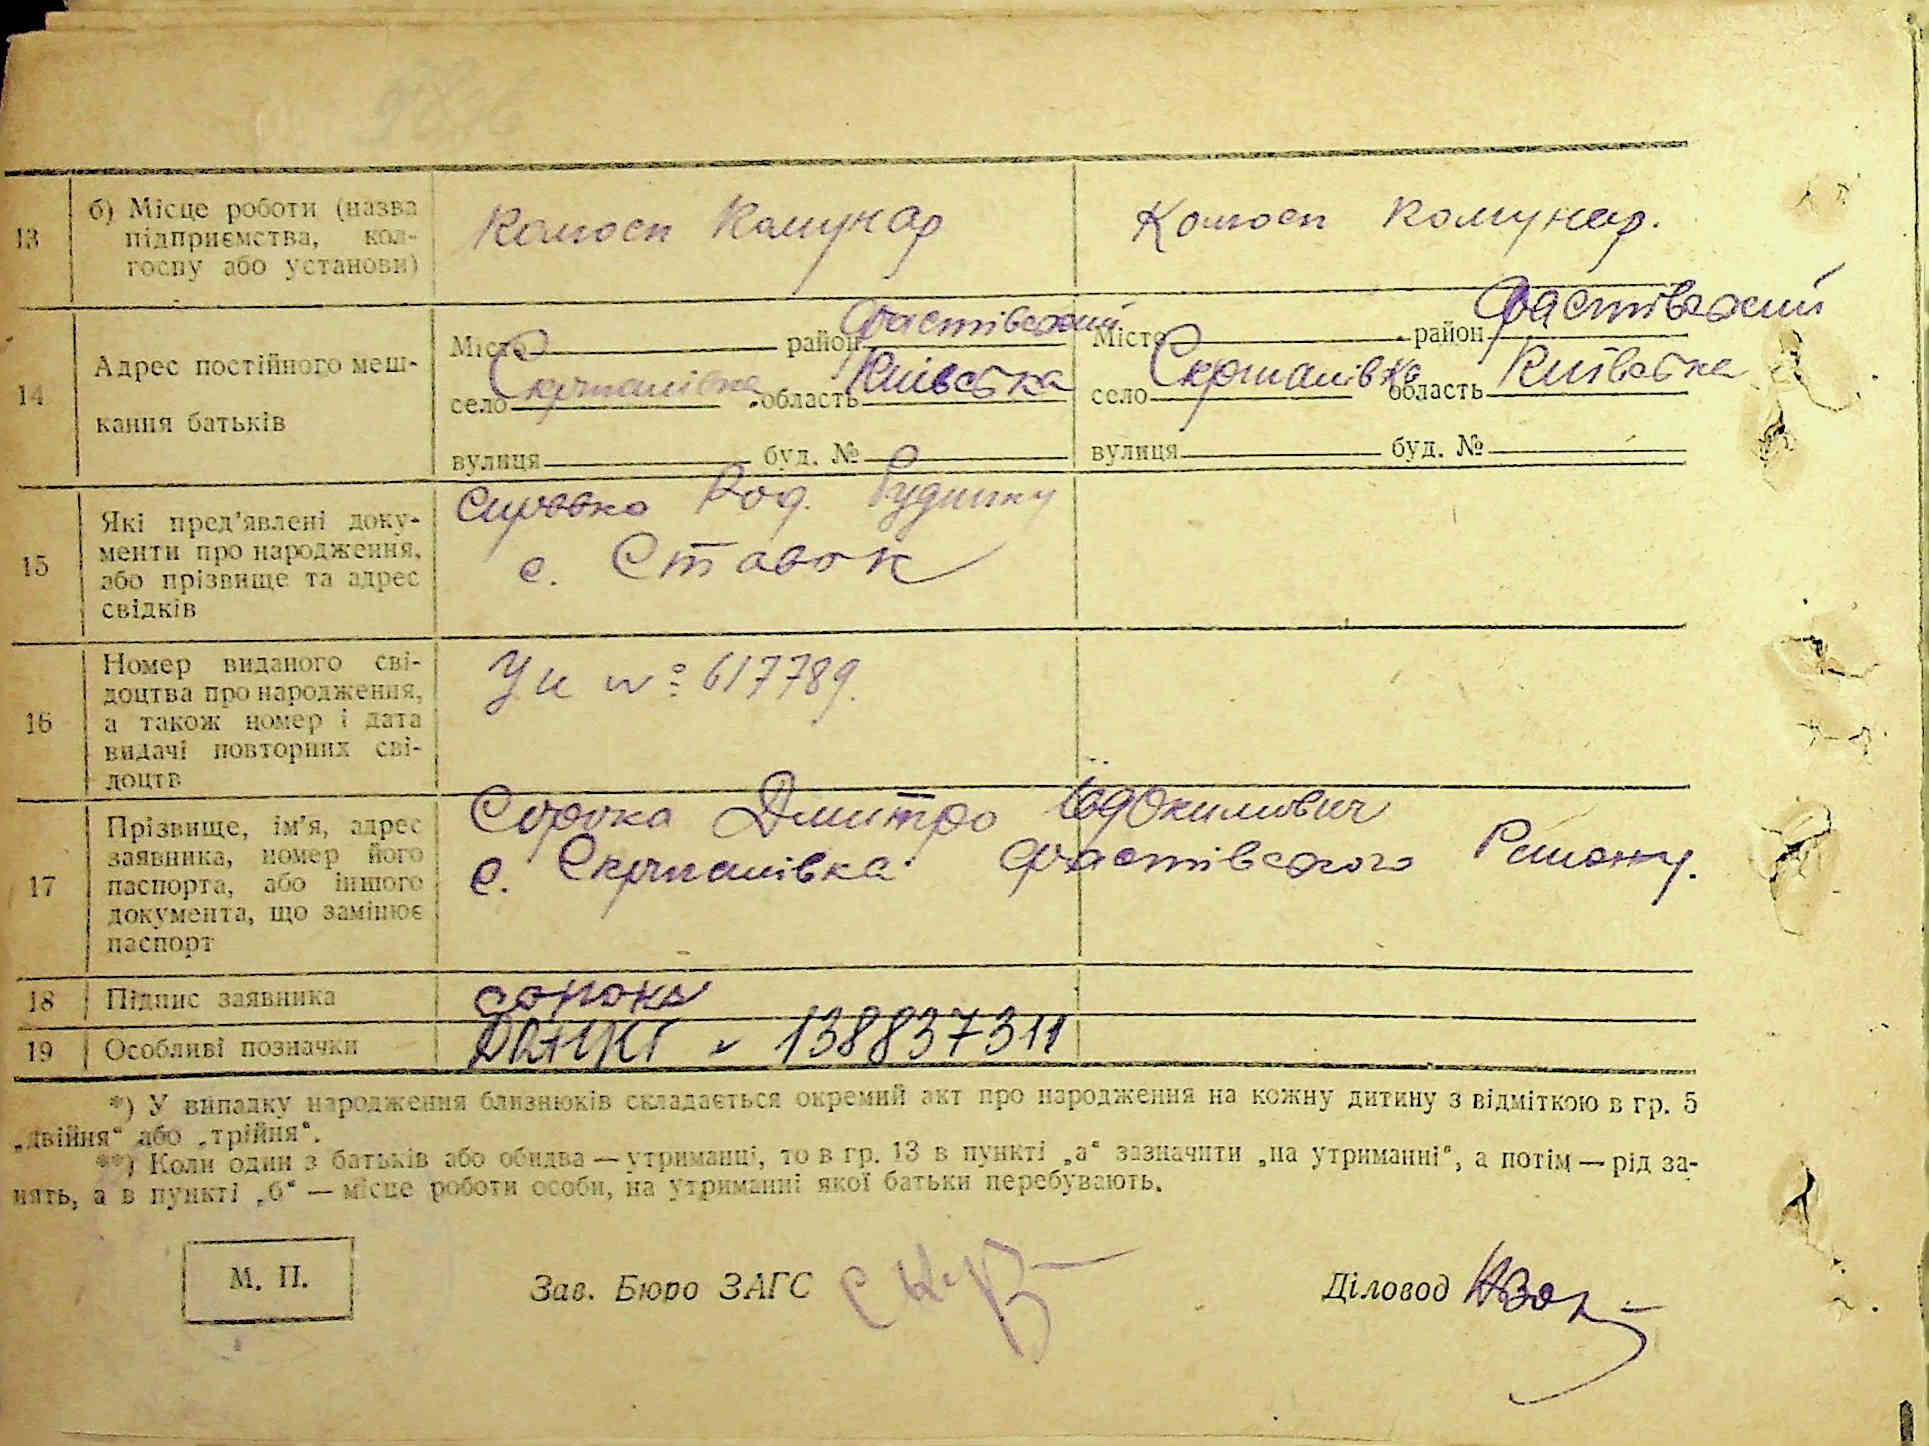 13
б) Місце роботи (назва
підприємства, кол-
госпу або установи)
Колгосп Комунар
Колгосп Комунар.
14
Адрес постійного меш-
кання батьків
Місто район Фастівський
село Скрипалівка область Київська
вулиця буд. №
Місто район Фастівський
село Скрипалівка область Київська
вулиця буд. №
15
Які пред’явлені доку-
менти про народження,
або прізвище та адрес
свідків
Справка Род. Будинку
с. Ставок
16
Номер виданого сві-
доцтва про народження,
а також номер і дата
видачі повторних сві-
доцтв
№ 617789.
17
Прізвище, ім’я, адрес
заявника, номер його
паспорта, або іншого
документа, що замінює
паспорт
Сорока Дмитро Євдокимович
с. Скрипалівка Фастівського Району.
18
Підпис заявника
Сорока
19
Особливі позначки
138837311
*) У випадку народження близнюків складається окремий акт про народження на кожну дитину з відміткою в гр. 5
„двійня“ або „трійня“.
**) Коли один з батьків або обидва — утриманці, то в гр. 13 в пункті „а“ зазначити „на утриманні“, а потім — рід за-
нять, а в пункті „б“ — місце роботи особи, на утриманні якої батьки перебувають.
М. П.
Зав. Бюро ЗАГС
Діловод